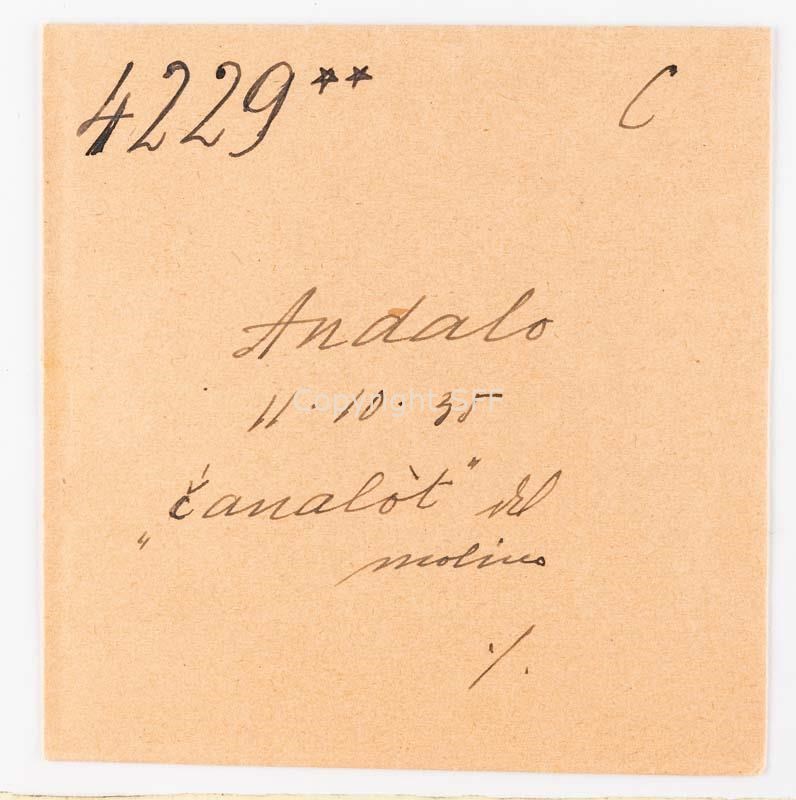 4229** C
Andalo
11·10·35
„čanalòt" del
molino
·/.
Copyright SFF